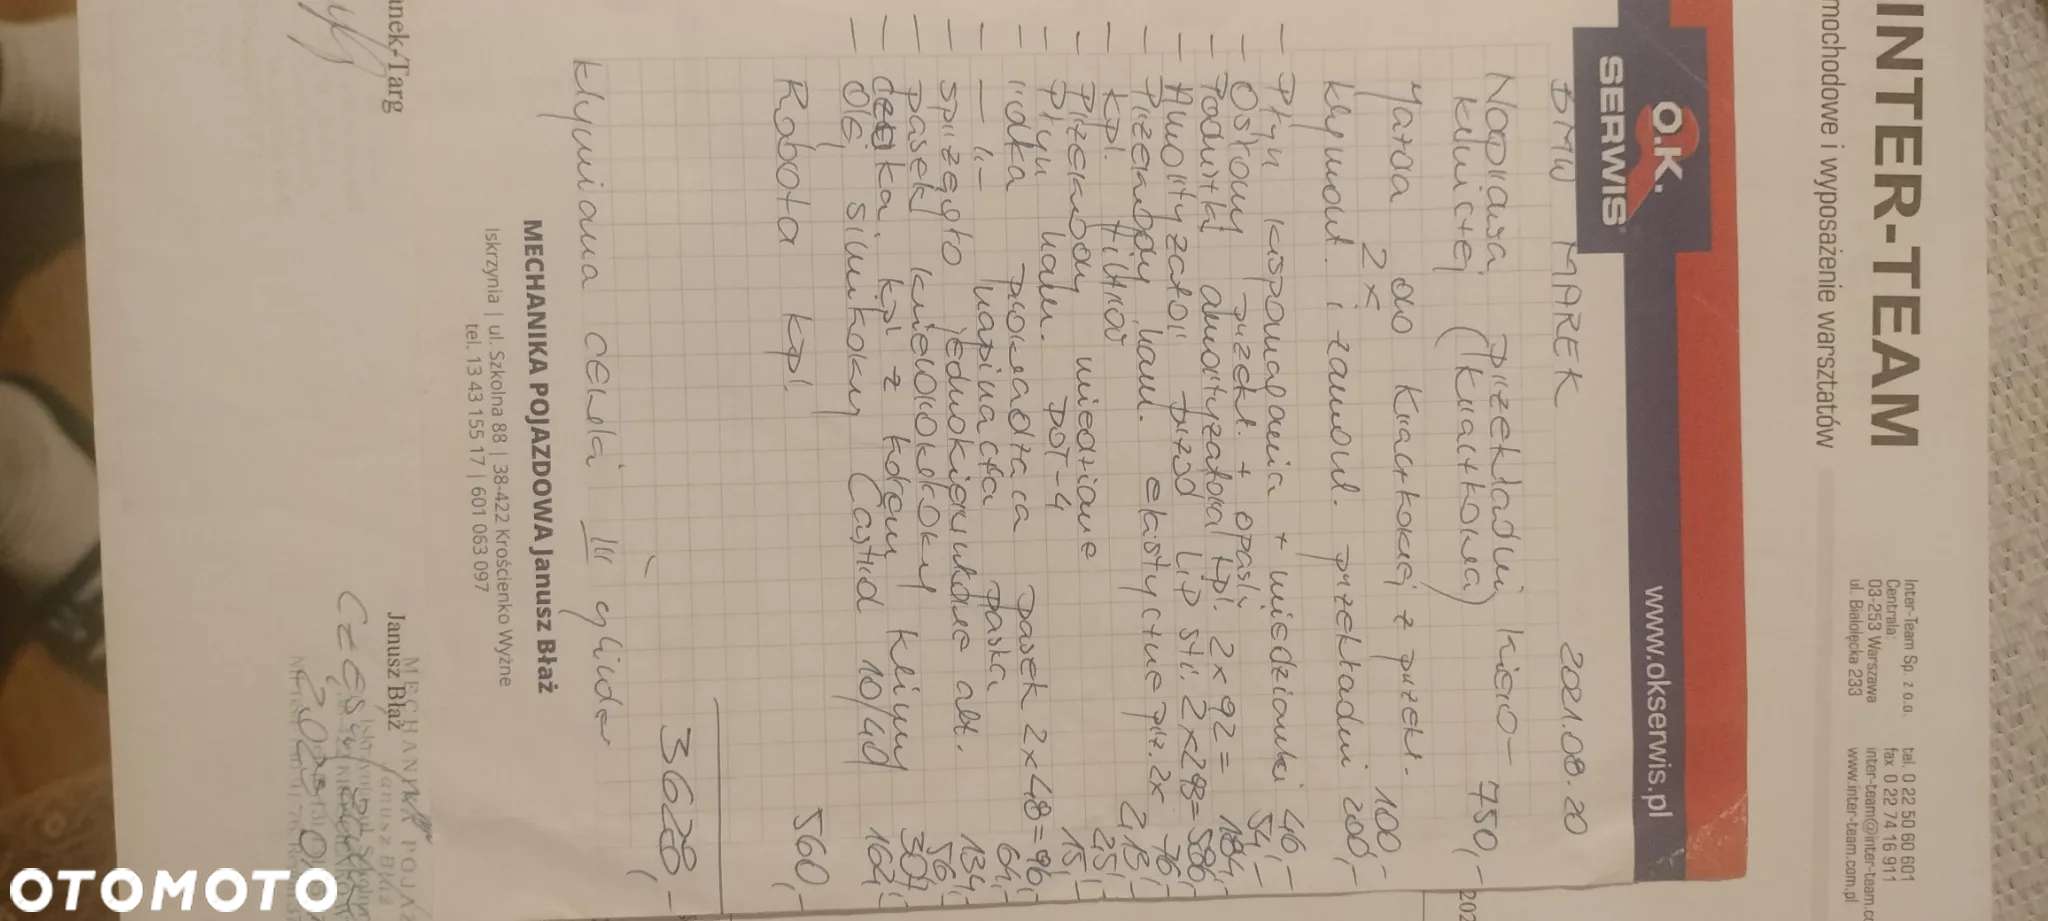 INTER-TEAM
mochodowe i wyposażenie warsztatów
Inter-Team Sp. z o.o.
Centrala:
03-253 Warszawa
ul. Białołęcka 233
tel. 0 22 50 60 601
fax 0 22 74 16 911
inter-team@inter-team.co
www.inter-team.com.pl
O.K.
SERWIS
www.okserwis.pl
BMW MAREK 2021.08.20
Naprawa przekładni kierow-
niczej (Kwiatkowa) 750,-
Jazda do Kwiatkowej z przekł. 100,-
2x
Wymont. i zamont. przekładni 200,-
- Płyn wspomagania + miedzianki 46,-
- Osłony przekł. + opaski 54,-
- Poduszki amortyzatora kpl. 2x92= 184,-
- Amortyzatory przód LiP szt. 2x298=596,-
- Przewody ham. elastyczne prz. 2x 76,-
- Kpl. filtrów 213,-
- Przewody miedziane 25,-
- Płyn ham. DOT-4 15,-
- rolka prowadząca pasek 2x48=96,-
- -"- napinacza paska 64,-
- sprzęgło jednokierunkowe alt. 134,-
- pasek wielorowkowy klimy 56,-
- kpl z kołem 304,-
- Olej silnikowy Castrol 10/40 162,-
Robota kpl. 560,-
3628,-
Wymiana cewki III cylinder
MECHANIKA POJAZDOWA Janusz Błaż
Iskrzynia | ul. Szkolna 88 | 38-422 Krościenko Wyżne
tel. 13 43 155 17 | 601 063 097
anek-Targ
MECHANIKA POJAZ
Janusz Błaż
OTOMOTO